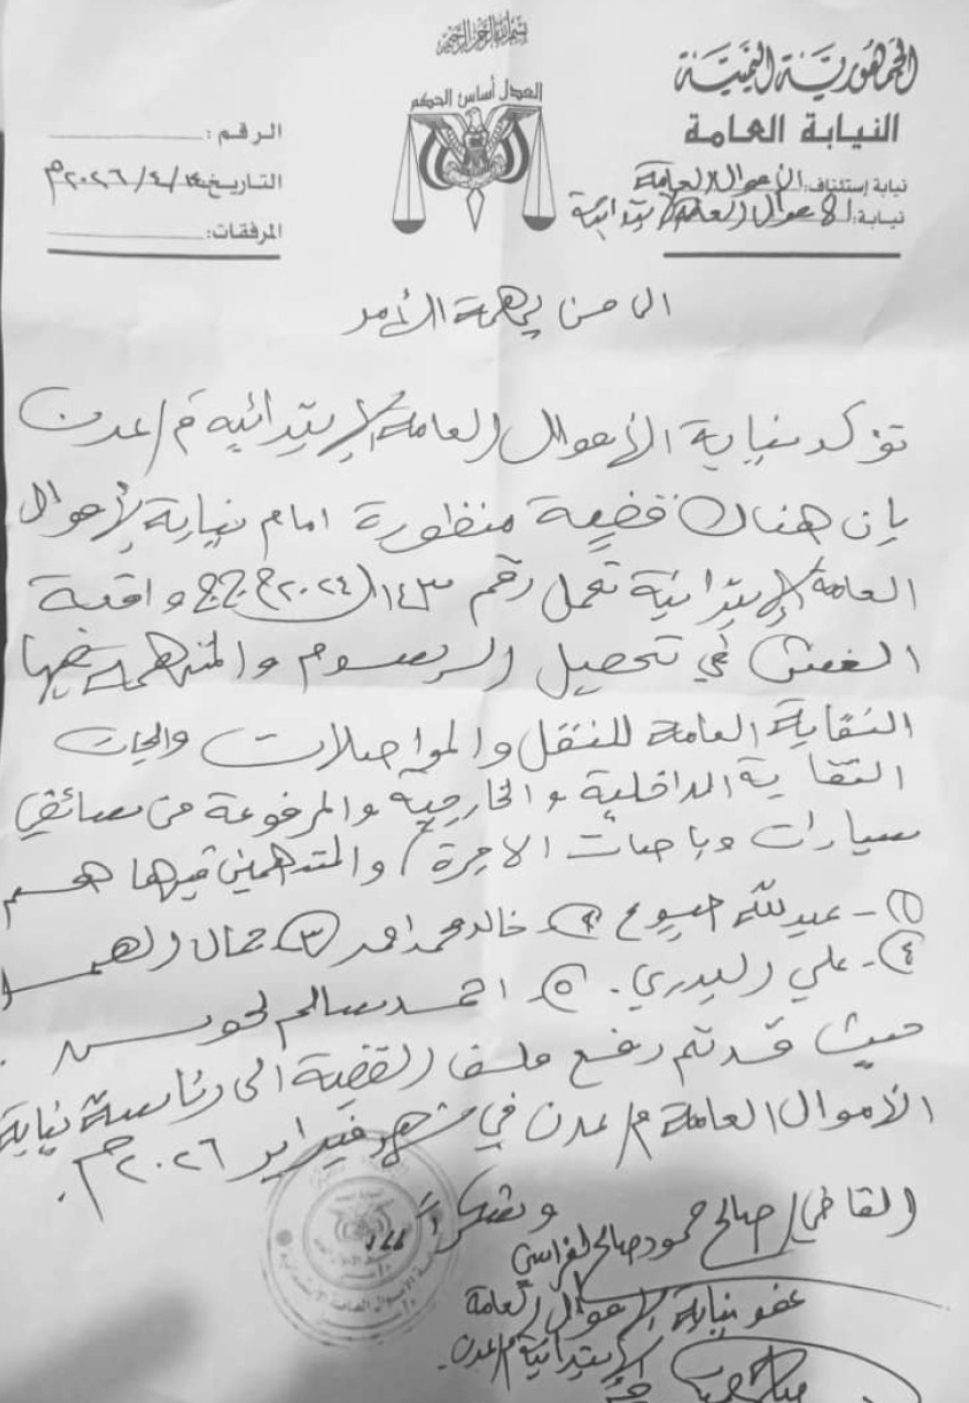 بسم الله الرحمن الرحيم
الجمهورية اليمنية
النيابة العامة
نيابة إستئناف: الأموال العامة
نيابة: الأموال العامة الابتدائية
العدل أساس الحكم
الرقم:
التاريخ: /٤/٢٠٢٦م
المرفقات:
الى من يهمه الأمر
تؤكد نيابة الأموال العامة الإبتدائيه م/عدن
بان هناك قضية منظورة امام نيابة الأموال
العامة الإبتدائية تحمل رقم ١٤٣ ٢٠٢٤م ج.ج واقعة
الغش في تحصيل الرسوم والمتهمة فيها
النقابة العامة للنقل والمواصلات واللجان
النقابية الداخلية والخارجيه والمرفوعة من سائقي
سيارات وباصات الاجرة والمتهمين فيها هم
١- عبدالله ٢- خالد محمد احمد ٣- جمال
٤- علي البدري. ٥- احمد سالم
حيث قد تم رفع ملف القضية الى رئاسة نيابة
الأموال العامة م/عدن في شهر فبراير ٢٠٢٦م.
وشكراً
القاضي/ صالح حمود صالح
عضو نيابة الأموال العامة
الإبتدائية م/عدن.